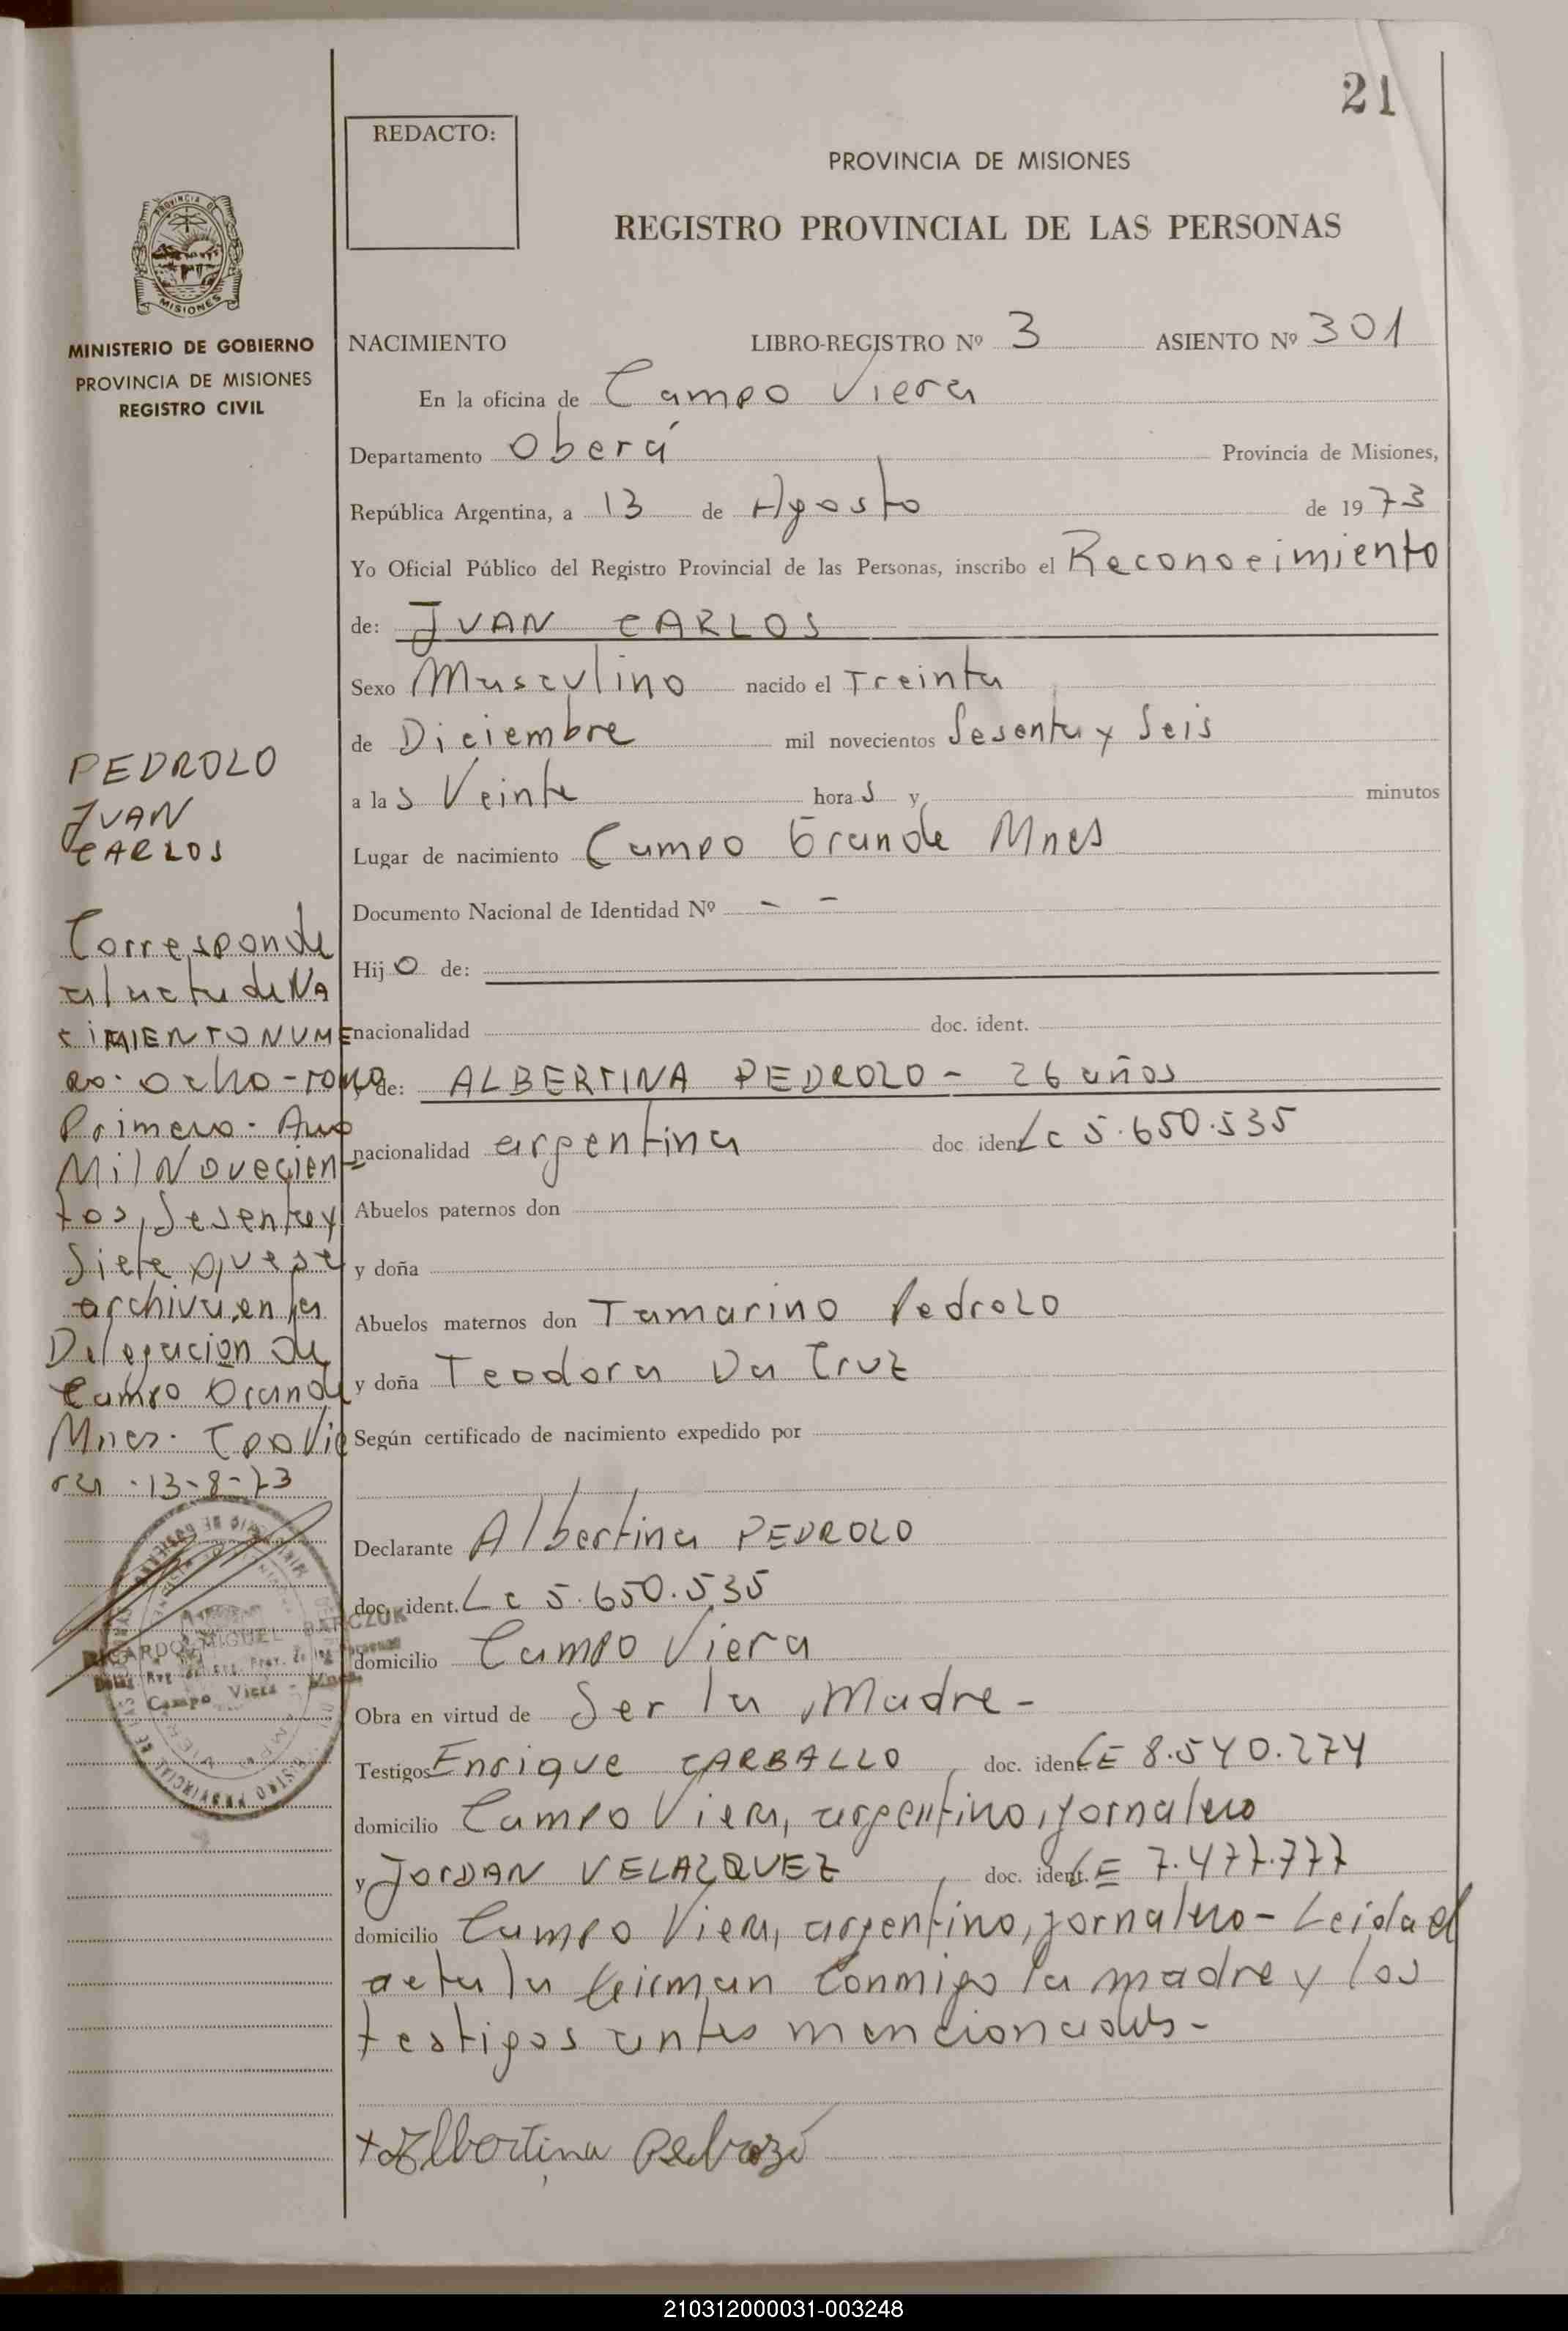 21
REDACTO:
PROVINCIA DE MISIONES
REGISTRO PROVINCIAL DE LAS PERSONAS
PROVINCIA DE
MISIONES
MINISTERIO DE GOBIERNO
PROVINCIA DE MISIONES
REGISTRO CIVIL
NACIMIENTO LIBRO-REGISTRO Nº 3 ASIENTO Nº 301
En la oficina de Campo Viera
Departamento Oberá Provincia de Misiones,
República Argentina, a 13 de Agosto de 1973
Yo Oficial Público del Registro Provincial de las Personas, inscribo el Reconocimiento
de: JUAN CARLOS
Sexo Masculino nacido el Treinta
de Diciembre mil novecientos Sesenta y Seis
a las Veinte horas y minutos
Lugar de nacimiento Campo Grande Mnes
Documento Nacional de Identidad Nº - -
Hijo de:
nacionalidad doc. ident.
y de: ALBERTINA PEDROZO - 26 años
nacionalidad argentina doc ident Lc 5.650.535
Abuelos paternos don
y doña
Abuelos maternos don Tamarino Pedrozo
y doña Teodora Da Cruz
Según certificado de nacimiento expedido por
Declarante Albertina PEDROZO
doc. ident. Lc 5.650.535
domicilio Campo Viera
Obra en virtud de Ser la Madre -
Testigos Enrique CARBALLO, doc. ident LE 8.540.274
domicilio Campo Viera, argentino, jornalero
y JORDAN VELAZQUEZ, doc. ident. LE 7.477.777
domicilio Campo Viera, argentino, jornalero - Leida el
acta la firman Conmigo la madre y los
testigos antes mencionados -
+ Albertina Pedrozo
PEDROZO
JUAN
CARLOS
Corresponde
al acta de NA
CIMIENTO NUME
RO. ocho - TOMO
Primero. Año
Mil Novecien-
tos, Sesenta y
Siete que se
archiva en la
Delegacion de
Campo Grande
Mnes. CpoVie
ra - 13-8-73
RICARDO MIGUEL BARCZUK
Campo Viera - Mnes.
210312000031-003248